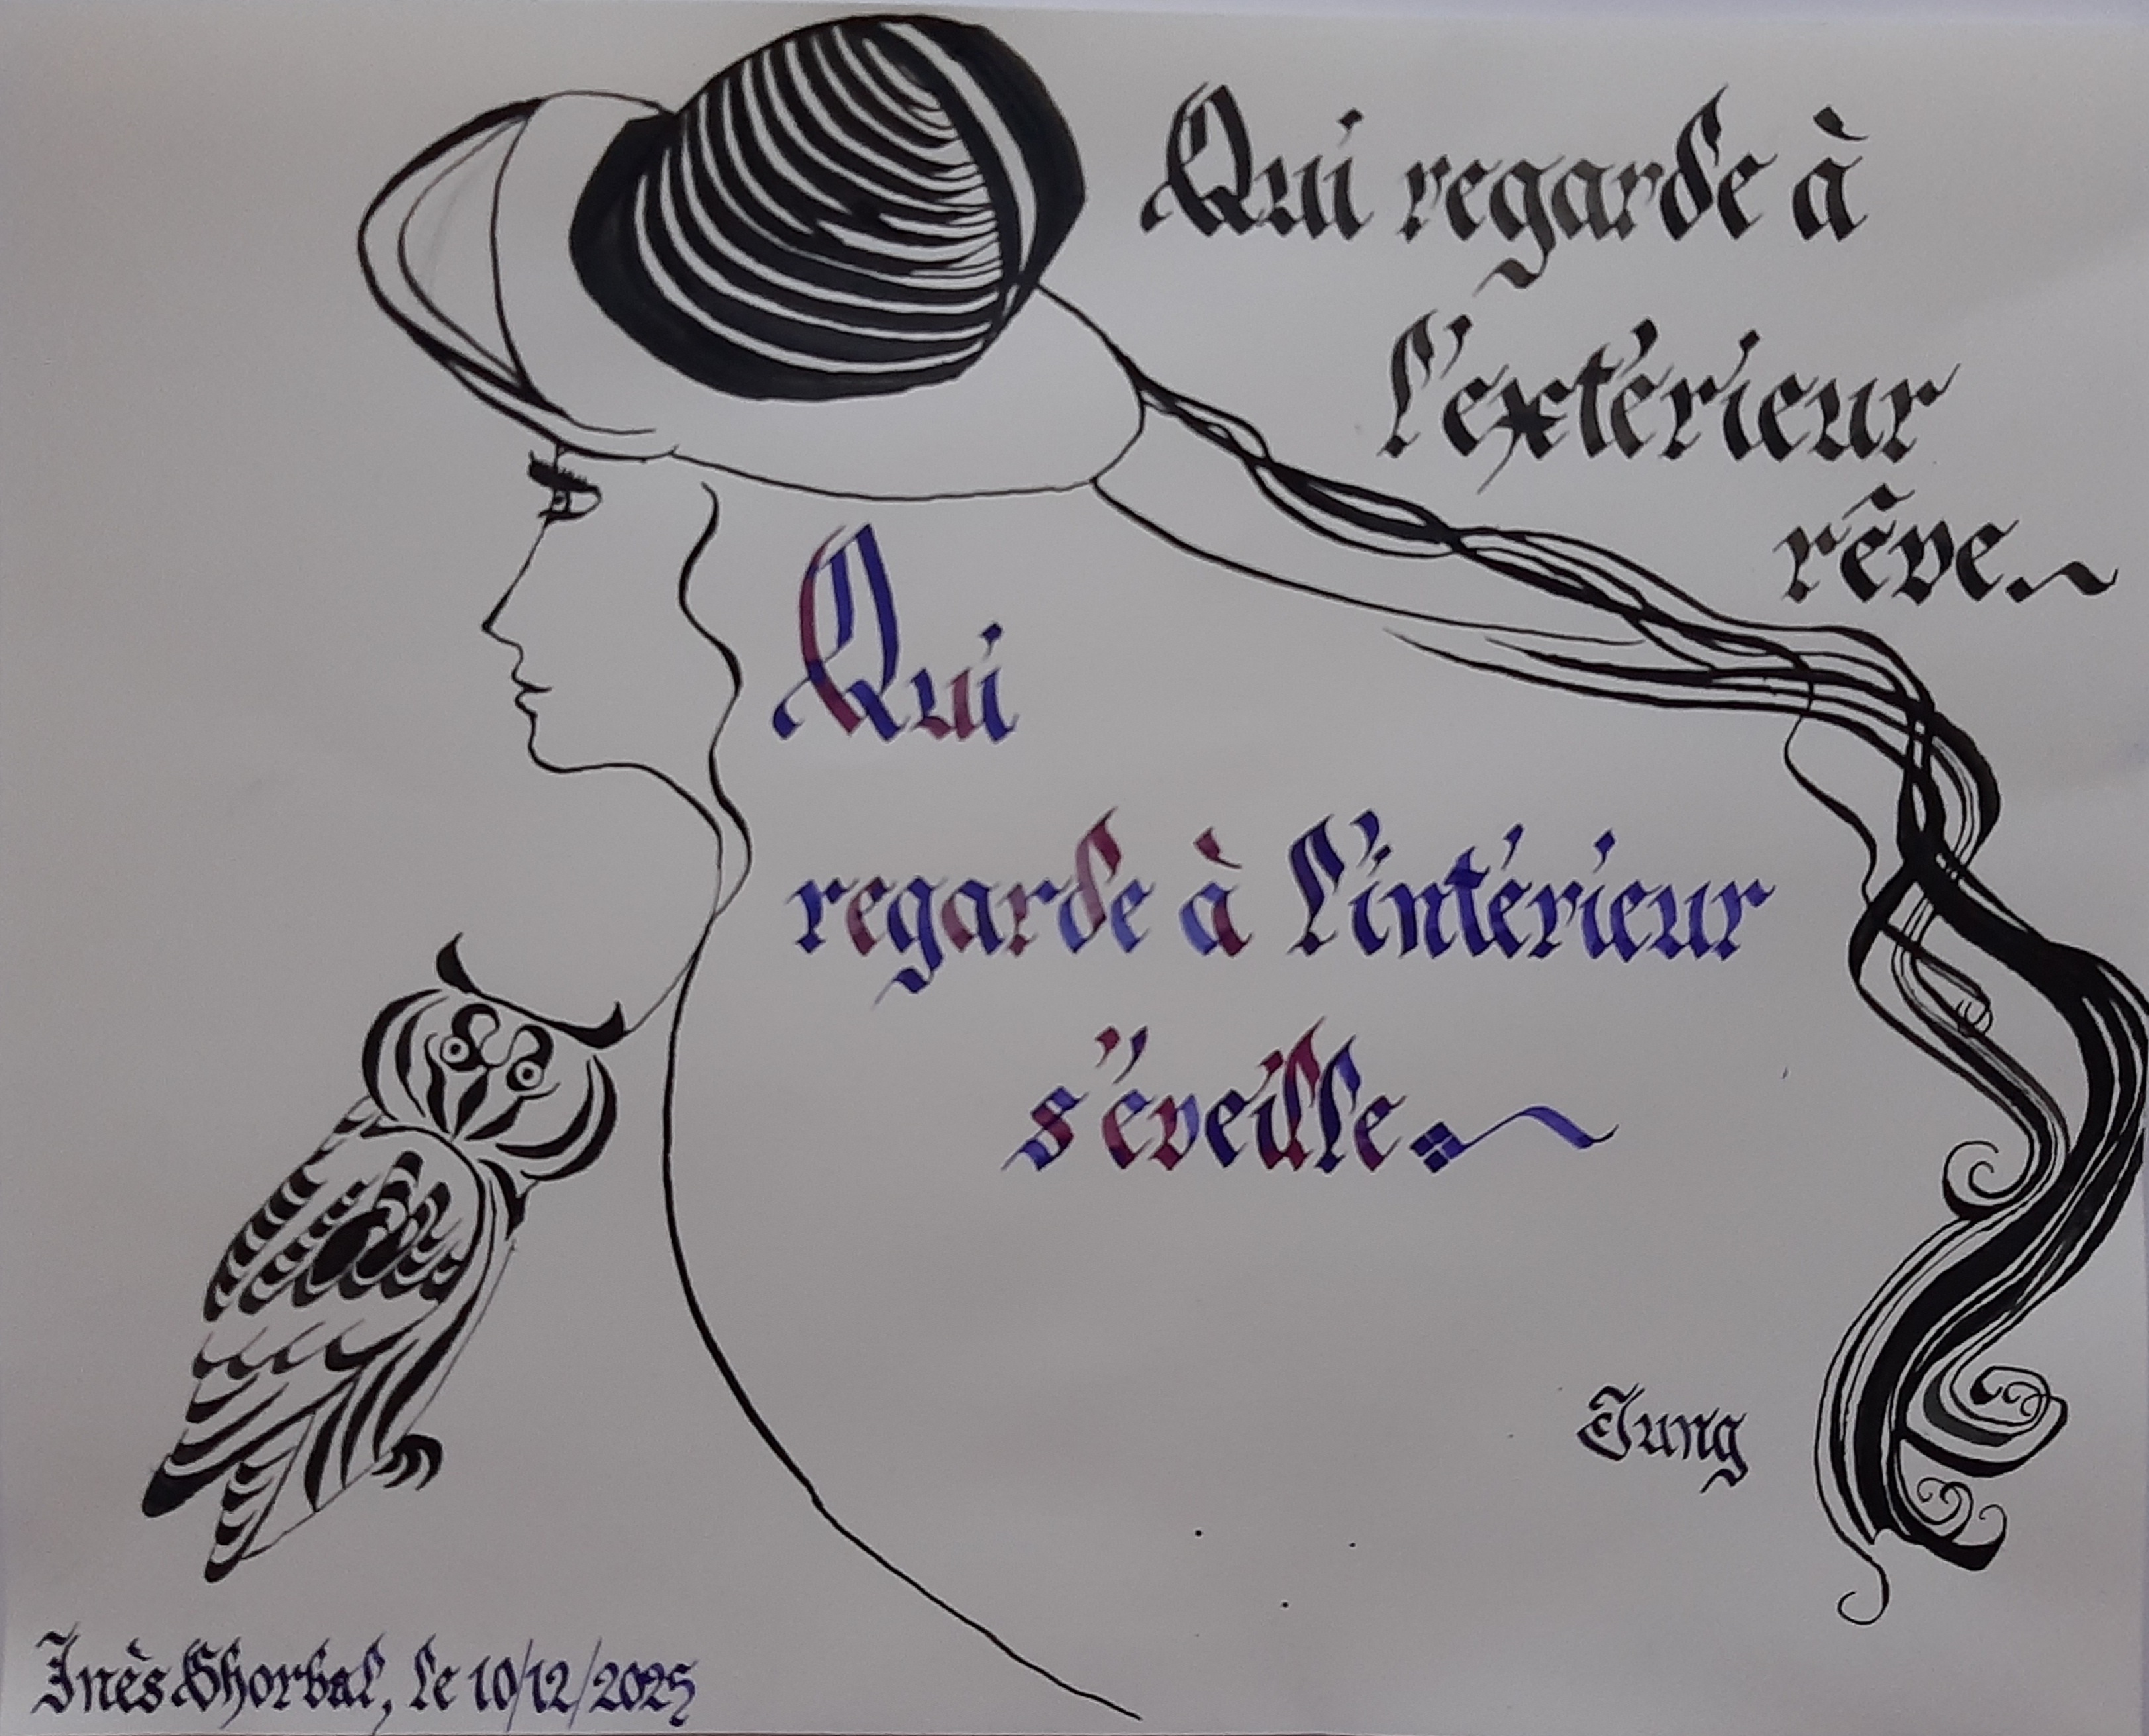 Qui regarde à
l'extérieur
rêve.
Qui
regarde à l'intérieur
s'éveille.
Jung
Inès Ghorbal, le 10/12/2025